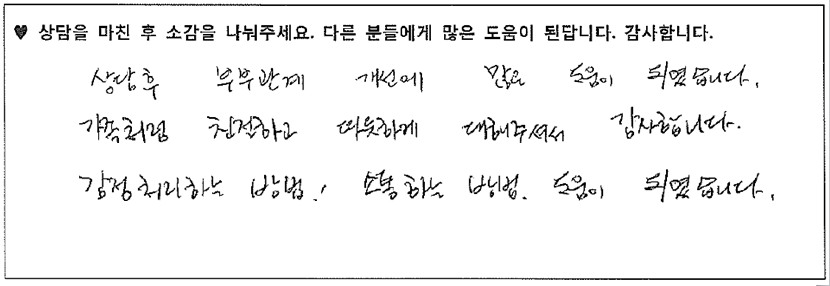 ♥ 상담을 마친 후 소감을 나눠주세요. 다른 분들에게 많은 도움이 된답니다. 감사합니다.
상담후 부부관계 개선에 많은 도움이 되였습니다.
가족처럼 친절하고 따뜻하게 대해주셔서 감사합니다.
감정처리하는 방법, 소통하는 방법. 도움이 되였습니다.